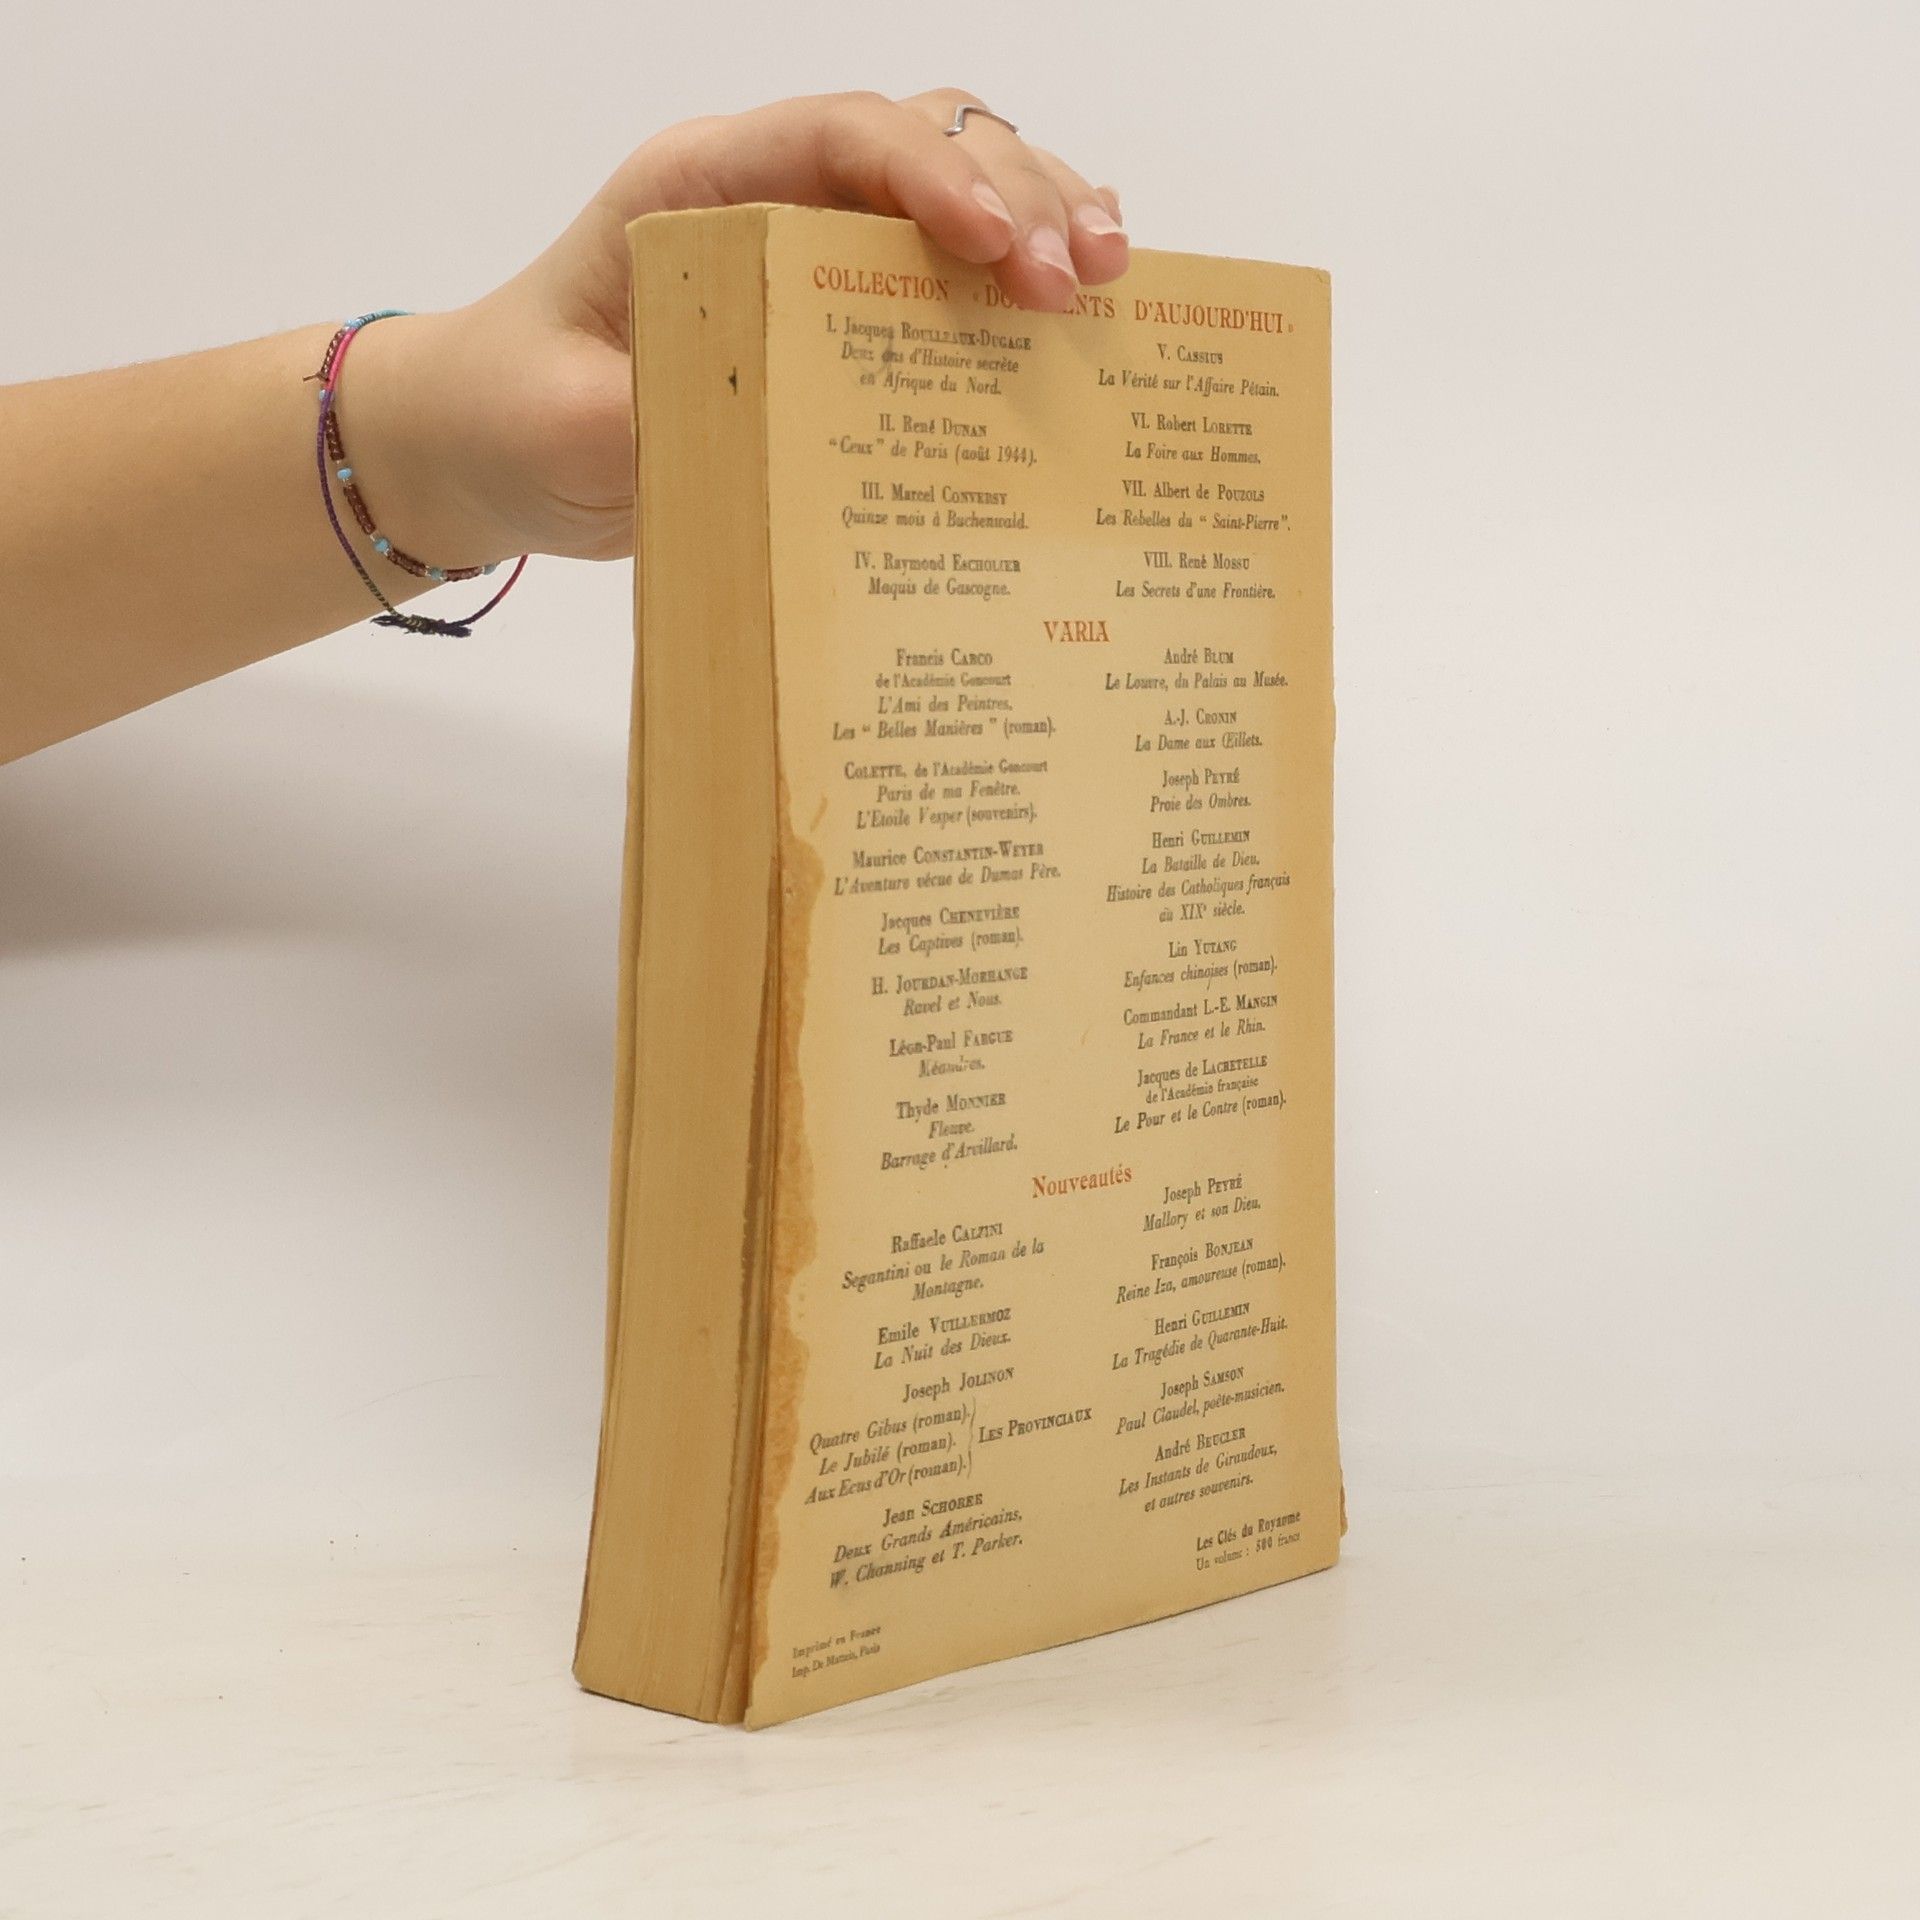 COLLECTION « DOCUMENTS D'AUJOURD'HUI »
I. Jacques ROULLEAUX-DUGAGE
Deux ans d'Histoire secrète
en Afrique du Nord.
II. René DUNAN
“Ceux” de Paris (août 1944).
III. Marcel CONVERSY
Quinze mois à Buchenwald.
IV. Raymond ESCHOLIER
Maquis de Gascogne.
V. CASSIUS
La Vérité sur l'Affaire Pétain.
VI. Robert LORETTE
La Foire aux Hommes.
VII. Albert de POUZOLS
Les Rebelles du “ Saint-Pierre”.
VIII. René MOSSU
Les Secrets d'une Frontière.
VARIA
Francis CARCO
de l'Académie Goncourt
L'Ami des Peintres.
Les “ Belles Manières ” (roman).
COLETTE, de l'Académie Goncourt
Paris de ma Fenêtre.
L'Etoile Vesper (souvenirs).
Maurice CONSTANTIN-WEYER
L'Aventure vécue de Dumas Père.
Jacques CHENEVIÈRE
Les Captives (roman).
H. JOURDAN-MORHANGE
Ravel et Nous.
Léon-Paul FARGUE
Méandres.
Thyde MONNIER
Fleuve.
Barrage d'Arvillard.
André BLUM
Le Louvre, du Palais au Musée.
A.-J. CRONIN
La Dame aux Œillets.
Joseph PEYRÉ
Proie des Ombres.
Henri GUILLEMIN
La Bataille de Dieu.
Histoire des Catholiques français
au XIXe siècle.
Lin YUTANG
Enfances chinoises (roman).
Commandant L.-E. MANGIN
La France et le Rhin.
Jacques de LACRETELLE
de l'Académie française
Le Pour et le Contre (roman).
Nouveautés
Raffaele CALZINI
Segantini ou le Roman de la
Montagne.
Emile VUILLERMOZ
La Nuit des Dieux.
Joseph JOLINON
Quatre Gibus (roman).
Le Jubilé (roman).
Aux Ecus d'Or (roman).
LES PROVINCIAUX
Jean SCHORER
Deux Grands Américains,
W. Channing et T. Parker.
Joseph PEYRÉ
Mallory et son Dieu.
François BONJEAN
Reine Iza, amoureuse (roman).
Henri GUILLEMIN
La Tragédie de Quarante-Huit.
Joseph SAMSON
Paul Claudel, poète-musicien.
André BEUCLER
Les Instants de Giraudoux,
et autres souvenirs.
Les Clés du Royaume
Un volume : 500 francs
Imprimé en France
Imp. De Matteis, Paris